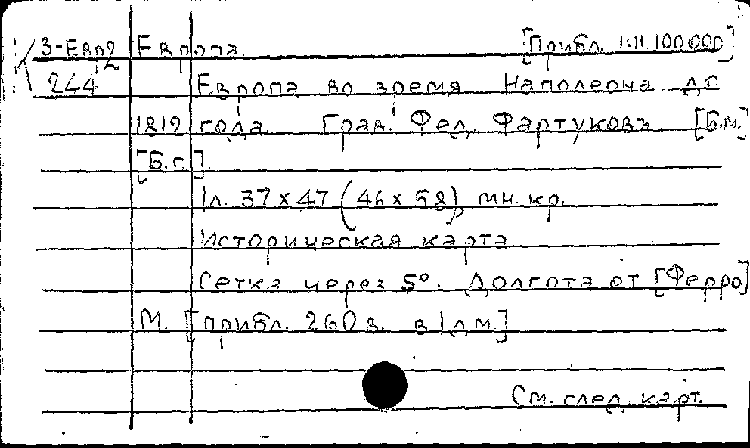 К 3-Евр2 Европа. [Прибл. 1:11.100000]
244 Европа во время Наполеона до
1812 года. Грав. Фед. Фартуковъ [Б.м.]
[Б.г.].
1л. 37 x 47 (46 x 58), мн. кр.
Историческая карта
Сетка через 5°. Долгота от [Ферро]
М. [прибл. 260 в. в 1 дм.]
См. след. карт.